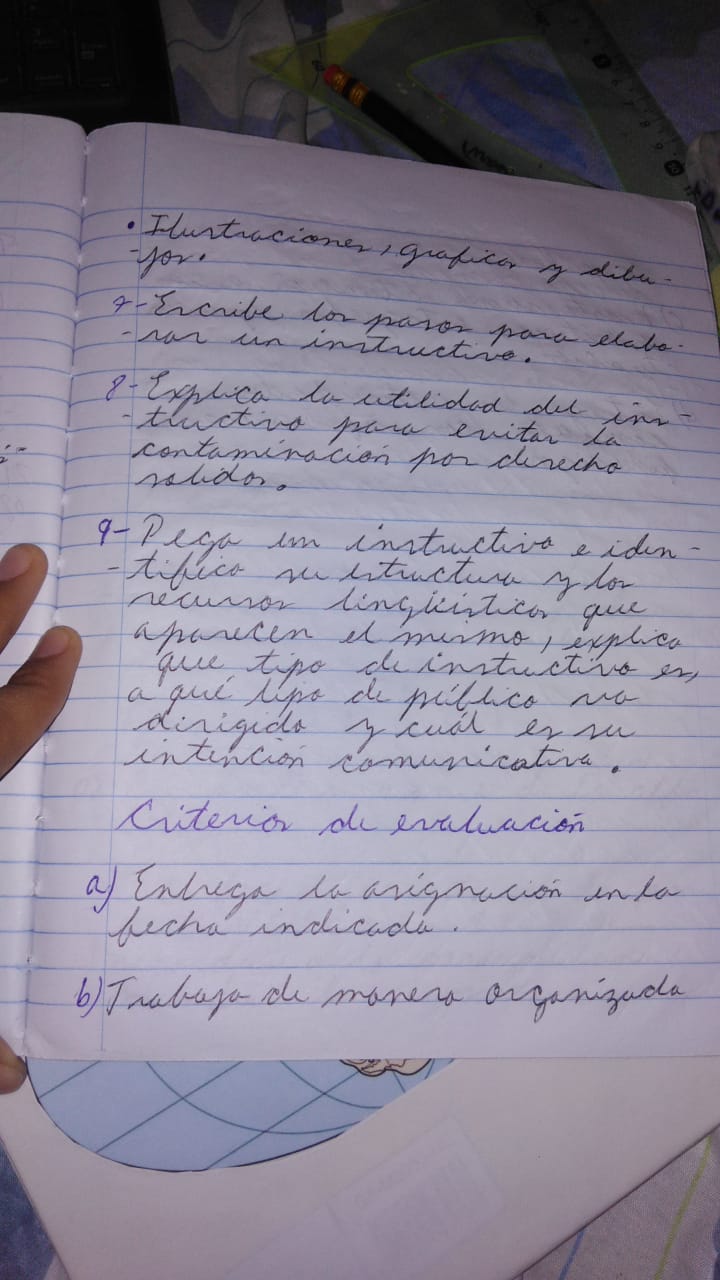 • Ilustraciones, graficos y dibu-
-jos.
7- Escribe los pasos para elabo-
-rar un instructivo.
8- Explica la utilidad del ins-
-tructivo para evitar la
contaminación por desecho
solidos.
9- Pega un instructivo e iden-
-tifica su estructura y los
recursos lingüísticos que
aparecen el mismo, explica
que tipo de instructivo es,
a qué tipo de público va
dirigido y cuál es su
intención comunicativa.
Criterios de evaluación
a) Entrega la asígnación en la
fecha indicada.
b) Trabaja de manera organizada